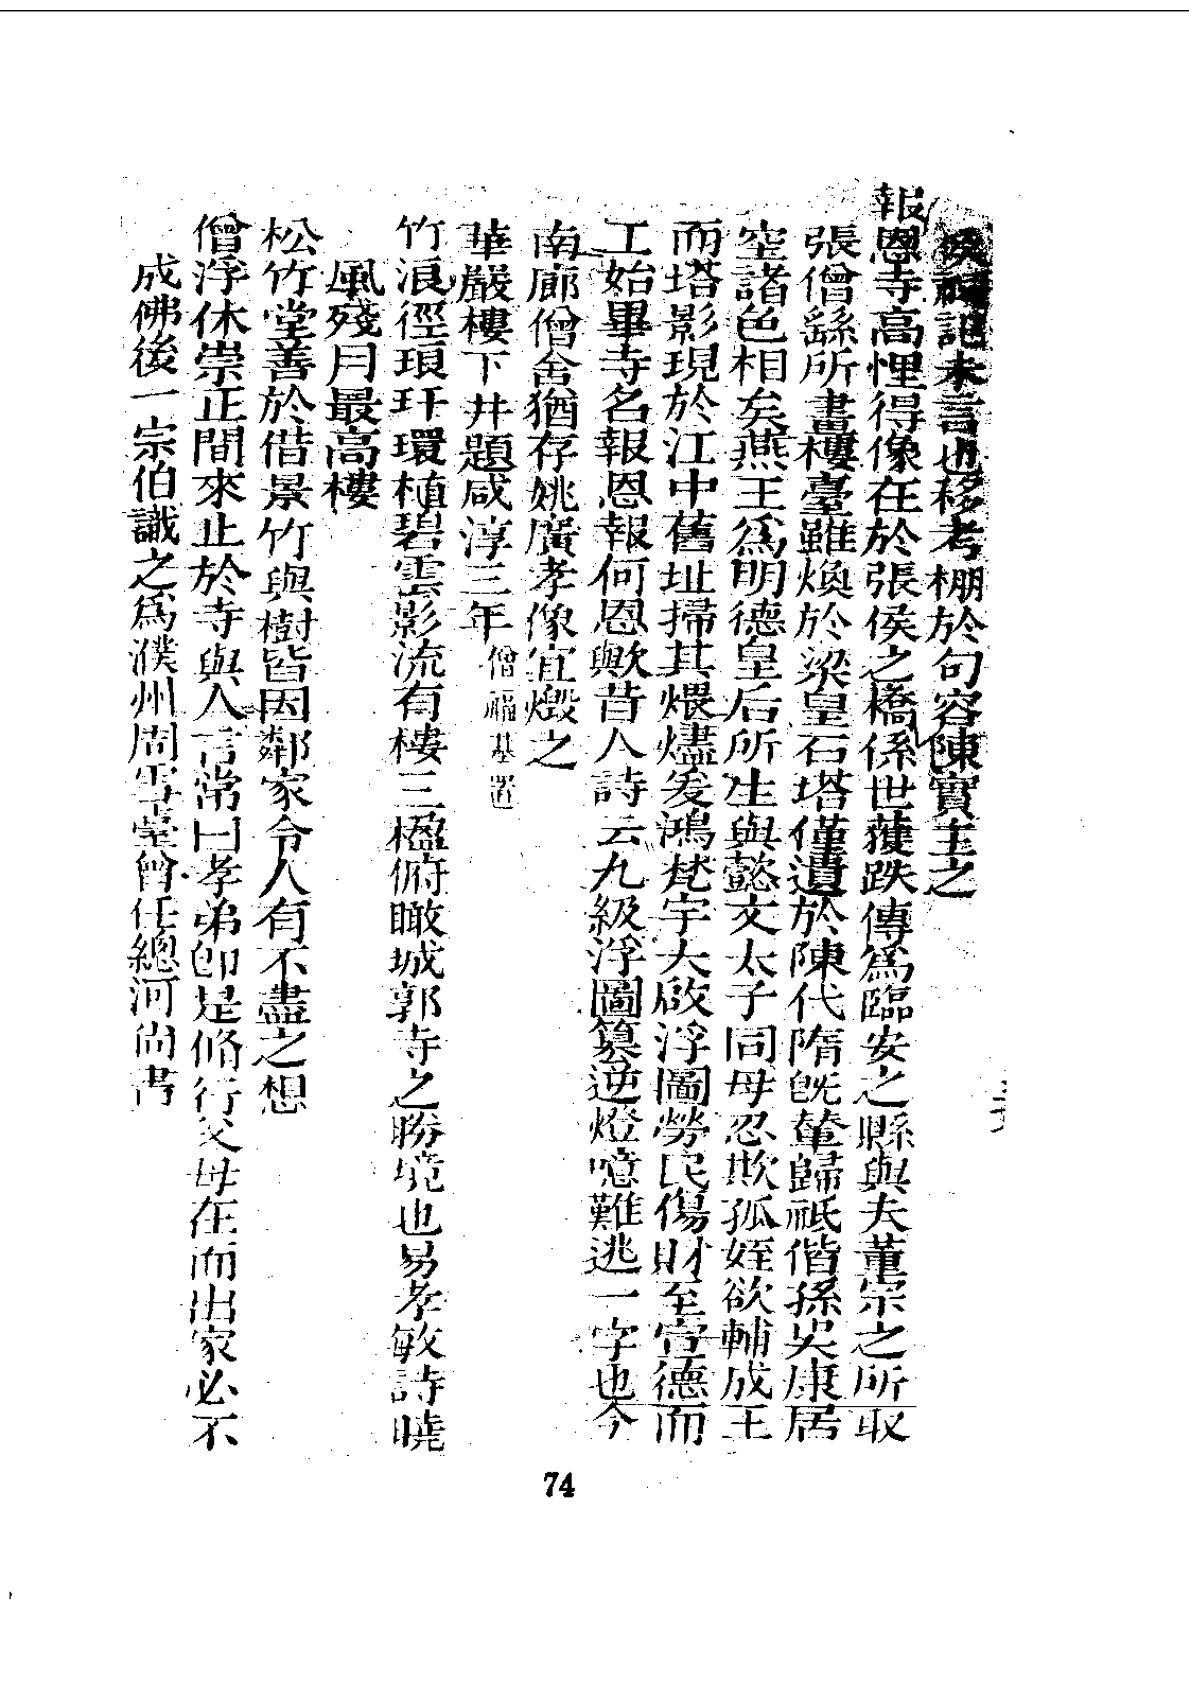 侯祠記未言也移考棚於句容陳實主之
報恩寺高悝得像在於張侯之橋係世獲跌傳爲臨安之縣與夫董宗之所取
張僧繇所畫樓臺雖煥於梁皇石塔僅遺於陳代隋旣輦歸祇偕孫吳康居
空諸色相矣燕王爲明德皇后所生與懿文太子同母忍欺孤姪欲輔成王
而塔影現於江中舊址掃其煨燼爰鴻梵宇大啟浮圖勞民傷財至宣德而
工始畢寺名報恩報何恩歟昔人詩云九級浮圖篡逆燈噫難逃一字也今
南廊僧舍猶存姚廣孝像宜燬之
華嚴樓下井題咸淳三年僧福基置
竹浪徑琅玕環植碧雲影流有樓三楹俯瞰城郭寺之勝境也易孝敏詩曉
風殘月最高樓
松竹堂善於借景竹與樹皆因鄰家令人有不盡之想
僧浮休崇正間來止於寺與人言常曰孝弟卽是脩行父母在而出家必不
成佛後一宗伯識之爲濮州周雪臺曾任總河尙書
74